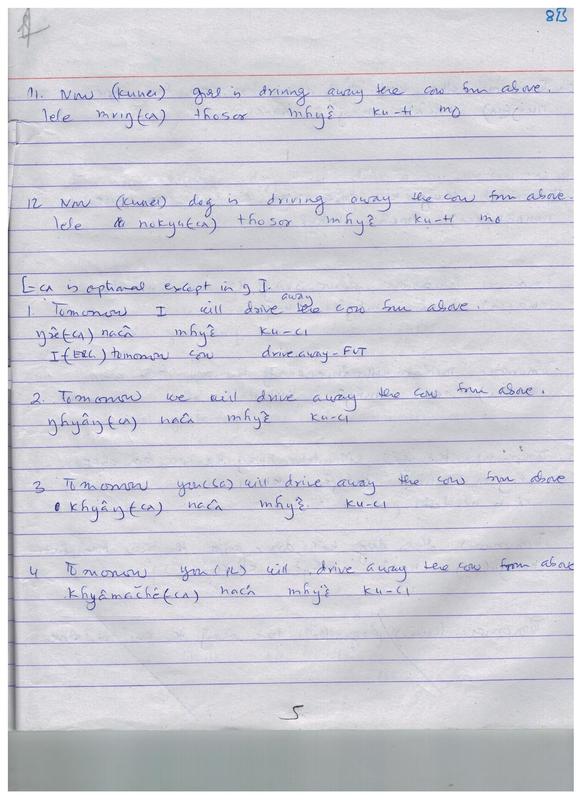 83
11. Now (Kunei) girl is driving away the cow from above.
lele mrıŋ(cʌ) thosor mhyɛ̂ ku-ti mo
12 Now (Kunei) dog is driving away the cow from above.
lele nokyu(cʌ) thosor mhyɛ̂ ku-ti mo
[-cʌ is optional except in 9].
1. Tomorrow I will drive away the cow from above.
ŋɛ̂(cʌ) nacʌ̂ mhyɛ̂ ku-ci
I(ERG.) tomorrow cow drive.away-FUT
2. Tomorrow we will drive away the cow from above.
ŋhyâŋ(cʌ) nacʌ̂ mhyɛ̂ ku-ci
3 Tomorrow you(SG) will drive away the cow from above
khyâŋ(cʌ) nacʌ̂ mhyɛ̂ ku-ci
4 Tomorrow you(PL) will drive away the cow from above
khyâmaĉhê(cʌ) nacʌ̂ mhyɛ̂ ku-ci
5